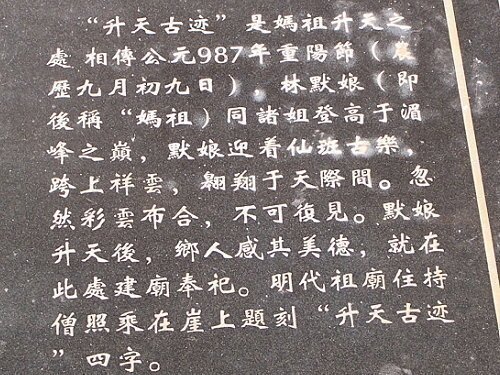 “升天古迹”是媽祖升天之
處 相傳公元987年重陽節（農
歷九月初九日），林默娘（即
後稱“媽祖）同諸姐登高于湄
峰之巔，默娘迎着仙班古樂，
跨上祥雲，翱翔于天際間。忽
然彩雲布合，不可復見。默娘
升天後，鄉人感其美德，就在
此處建廟奉祀。明代祖廟住持
僧照乘在崖上題刻“升天古迹
”四字。